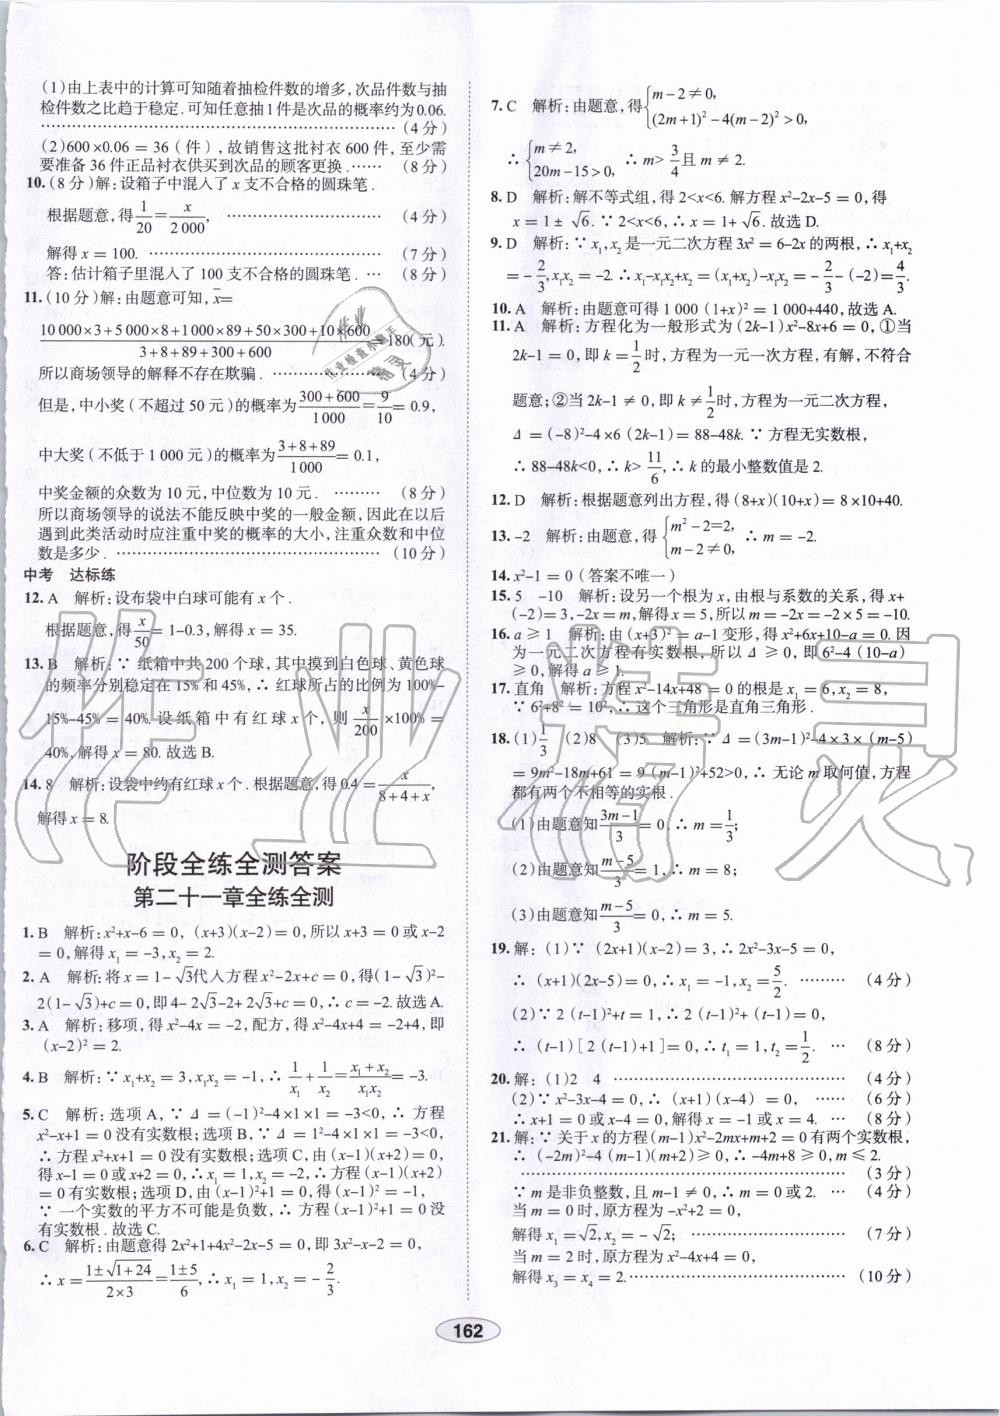 (1)由上表中的计算可知随着抽检件数的增多,次品件数与抽
检件数之比趋于稳定.可知任意抽1件是次品的概率约为0.06.
……………………………………………………(4分)
(2)600×0.06=36(件),故销售这批衬衣600件,至少需
要准备36件正品衬衣供买到次品的顾客更换.……(8分)
10.(8分)解:设箱子中混入了x支不合格的圆珠笔.
根据题意,得1/20=x/2 000,………………………(4分)
解得x=100.……………………………………(7分)
答:估计箱子里混入了100支不合格的圆珠笔.…(8分)
11.(10分)解:由题意可知,x̄=
(10 000×3+5 000×8+1 000×89+50×300+10×600)/(3+8+89+300+600)=180(元).
所以商场领导的解释不存在欺骗.………………(4分)
但是,中小奖(不超过50元)的概率为(300+600)/1 000=9/10=0.9,
中大奖(不低于1 000元)的概率为(3+8+89)/1 000=0.1,
中奖金额的众数为10元,中位数为10元.………(8分)
所以商场领导的说法不能反映中奖的一般金额,因此在以后
遇到此类活动时应注重中奖的概率的大小,注重众数和中位
数是多少.……………………………………(10分)
中考 达标练
12.A 解析:设布袋中白球可能有x个.
根据题意,得x/50=1-0.3,解得x=35.
13.B 解析:∵纸箱中共200个球,其中摸到白色球、黄色球
的频率分别稳定在15%和45%,∴红球所占的比例为100%-
15%-45%=40%.设纸箱中有红球x个,则x/200×100%=
40%,解得x=80.故选B.
14.8 解析:设袋中约有红球x个.根据题意,得0.4=x/(8+4+x),
解得x=8.
阶段全练全测答案
第二十一章全练全测
1.B 解析:x²+x-6=0,(x+3)(x-2)=0,所以x+3=0或x-2
=0,解得x₁=-3,x₂=2.
2.A 解析:将x=1-√3代入方程x²-2x+c=0,得(1-√3)²-
2(1-√3)+c=0,即4-2√3-2+2√3+c=0,∴c=-2.故选A.
3.A 解析:移项,得x²-4x=-2,配方,得x²-4x+4=-2+4,即
(x-2)²=2.
4.B 解析:∵x₁+x₂=3,x₁x₂=-1,∴1/x₁+1/x₂=(x₁+x₂)/(x₁x₂)=-3.
5.C 解析:选项A,∵Δ=(-1)²-4×1×1=-3<0,∴方程
x²-x+1=0没有实数根;选项B,∵Δ=1²-4×1×1=-3<0,
∴方程x²+x+1=0没有实数根;选项C,由(x-1)(x+2)=0,
得x-1=0或x+2=0,∴x₁=1,x₂=-2,∴方程(x-1)(x+2)
=0有实数根;选项D,由(x-1)²+1=0,得(x-1)²=-1,
∵一个实数的平方不可能是负数,∴方程(x-1)²+1=0没
有实数根.故选C.
6.C 解析:由题意得2x²+1+4x²-2x-5=0,即3x²-x-2=0,
∴x=(1±√(1+24))/(2×3)=(1±5)/6,∴x₁=1,x₂=-2/3.
7.C 解析:由题意,得{m-2≠0,
(2m+1)²-4(m-2)²>0,
∴{m≠2,
20m-15>0, ∴m>3/4且m≠2.
8.D 解析:解不等式组,得2<x<6.解方程x²-2x-5=0,得
x=1±√6.∵2<x<6,∴x=1+√6.故选D.
9.D 解析:∵x₁,x₂是一元二次方程3x²=6-2x的两根,∴x₁+x₂
=-2/3,x₁x₂=-2.∴x₁-x₁x₂+x₂=(x₁+x₂)-x₁x₂=-2/3-(-2)=4/3.
10.A 解析:由题意可得1 000(1+x)²=1 000+440,故选A.
11.A 解析:方程化为一般形式为(2k-1)x²-8x+6=0,①当
2k-1=0,即k=1/2时,方程为一元一次方程,有解,不符合
题意;②当2k-1≠0,即k≠1/2时,方程为一元二次方程,
Δ=(-8)²-4×6(2k-1)=88-48k.∵方程无实数根,
∴88-48k<0,∴k>11/6,∴k的最小整数值是2.
12.D 解析:根据题意列出方程,得(8+x)(10+x)=8×10+40.
13.-2 解析:由题意,得{m²-2=2,
m-2≠0, ∴m=-2.
14.x²-1=0(答案不唯一)
15.5 -10 解析:设另一个根为x,由根与系数的关系,得x+
(-2)=3,-2x=m,解得x=5,所以m=-2x=-2×5=-10.
16.a≥1 解析:由(x+3)²=a-1变形,得x²+6x+10-a=0.因
为一元二次方程有实数根,所以Δ≥0,即6²-4(10-a)
≥0,解得a≥1.
17.直角 解析:方程x²-14x+48=0的根是x₁=6,x₂=8,
∵6²+8²=10²,∴这个三角形是直角三角形.
18.(1)1/3 (2)8 (3)5 解析:∵Δ=(3m-1)²-4×3×(m-5)
=9m²-18m+61=9(m-1)²+52>0,∴无论m取何值,方程
都有两个不相等的实根.
(1)由题意知(3m-1)/3=0,∴m=1/3;
(2)由题意知(m-5)/3=1,∴m=8;
(3)由题意知(m-5)/3=0,∴m=5.
19.解:(1)∵(2x+1)(x-2)=3,∴2x²-3x-5=0,
∴(x+1)(2x-5)=0,∴x₁=-1,x₂=5/2.………(4分)
(2)∵2(t-1)²+t=1,∴2(t-1)²+(t-1)=0,
∴(t-1)[2(t-1)+1]=0,∴t₁=1,t₂=1/2.…(8分)
20.解:(1)2 4……………………………………(4分)
(2)∵x²-3x-4=0,∴(x+1)(x-4)=0,……(6分)
∴x+1=0或x-4=0,解得x=-1或x=4.…(8分)
21.解:∵关于x的方程(m-1)x²-2mx+m+2=0有两个实数根,
∴(-2m)²-4(m-1)(m+2)≥0,∴-4m+8≥0,m≤2.
……………………………………………………(3分)
∵m是非负整数,且m-1≠0,∴m=0或2.…(4分)
当m=0时,原方程为-x²+2=0,
解得x₁=√2,x₂=-√2;………………………(7分)
当m=2时,原方程为x²-4x+4=0,
解得x₃=x₄=2.………………………………(10分)
162
作业精灵